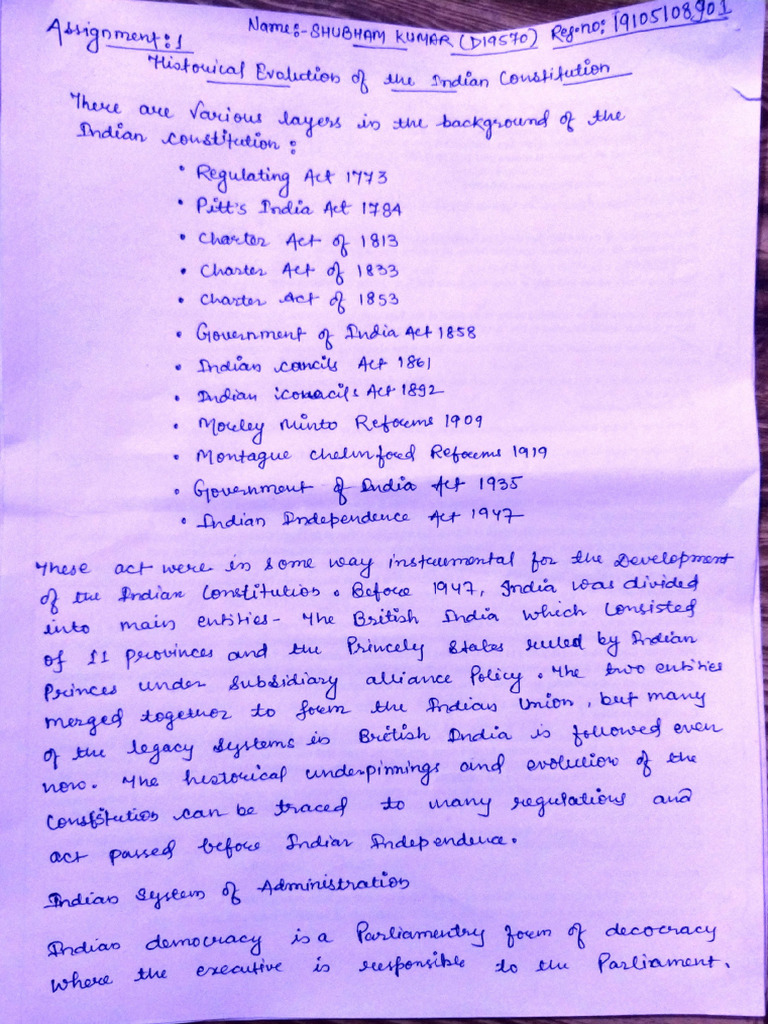 Assignment:1 Name:-SHUBHAM KUMAR (D19570) Reg.no: 19105108901
Historical Evolution of the Indian Constitution
There are various layers in the background of the
Indian constitution:
• Regulating Act 1773
• Pitt's India Act 1784
• Charter Act of 1813
• Charter Act of 1833
• Charter Act of 1853
• Government of India Act 1858
• Indian concils Act 1861
• Indian Act 1892
• Morley Minto Reforms 1909
• Montague chelmford Reforms 1919
• Government of India Act 1935
• Indian Independence Act 1947
These act were in some way instrumental for the Development
of the Indian Constitution. Before 1947, India was divided
into main entities- The British India which consisted
of 11 provinces and the Princely States ruled by Indian
Princes under subsidiary alliance Policy. The two entities
merged together to form the Indian Union, but many
of the legacy systems in British India is followed even
now. The historical underpinnings and evolution of the
Constitution can be traced to many regulations and
act passed before Indian Independence.
Indian System of Administration
Indian democracy is a Parliamentry form of decocracy
where the executive is responsible to the Parliament.